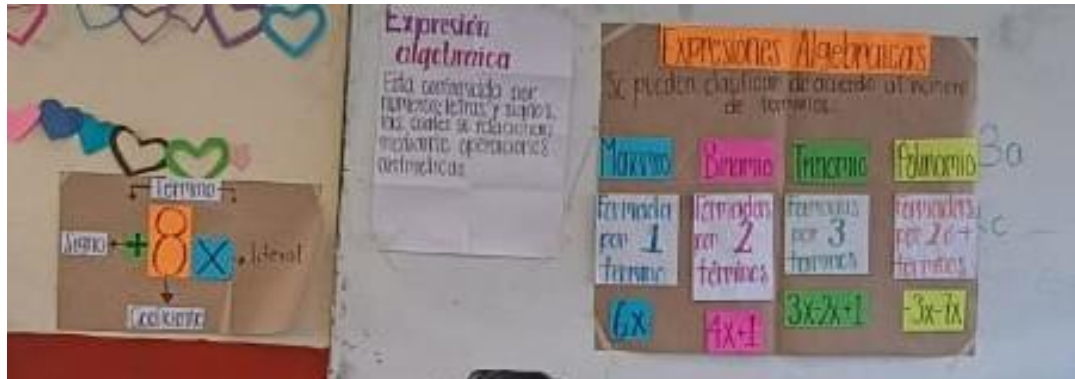 Término
Signo + 8 x literal
Coeficiente
Expresión
algebraica
Está conformada por
números, letras y signos,
las cuales se relacionan
mediante operaciones
aritméticas
Expresiones Algebraicas
Se pueden clasificar de acuerdo al número
de términos.
Monomio Binomio Trinomio Polinomio
Formada por 1 término
Formadas por 2 términos
Formadas por 3 términos
Formadas por 2 ó + términos
6x
4x+1
3x-2x+1
-3x-7x
3a
c